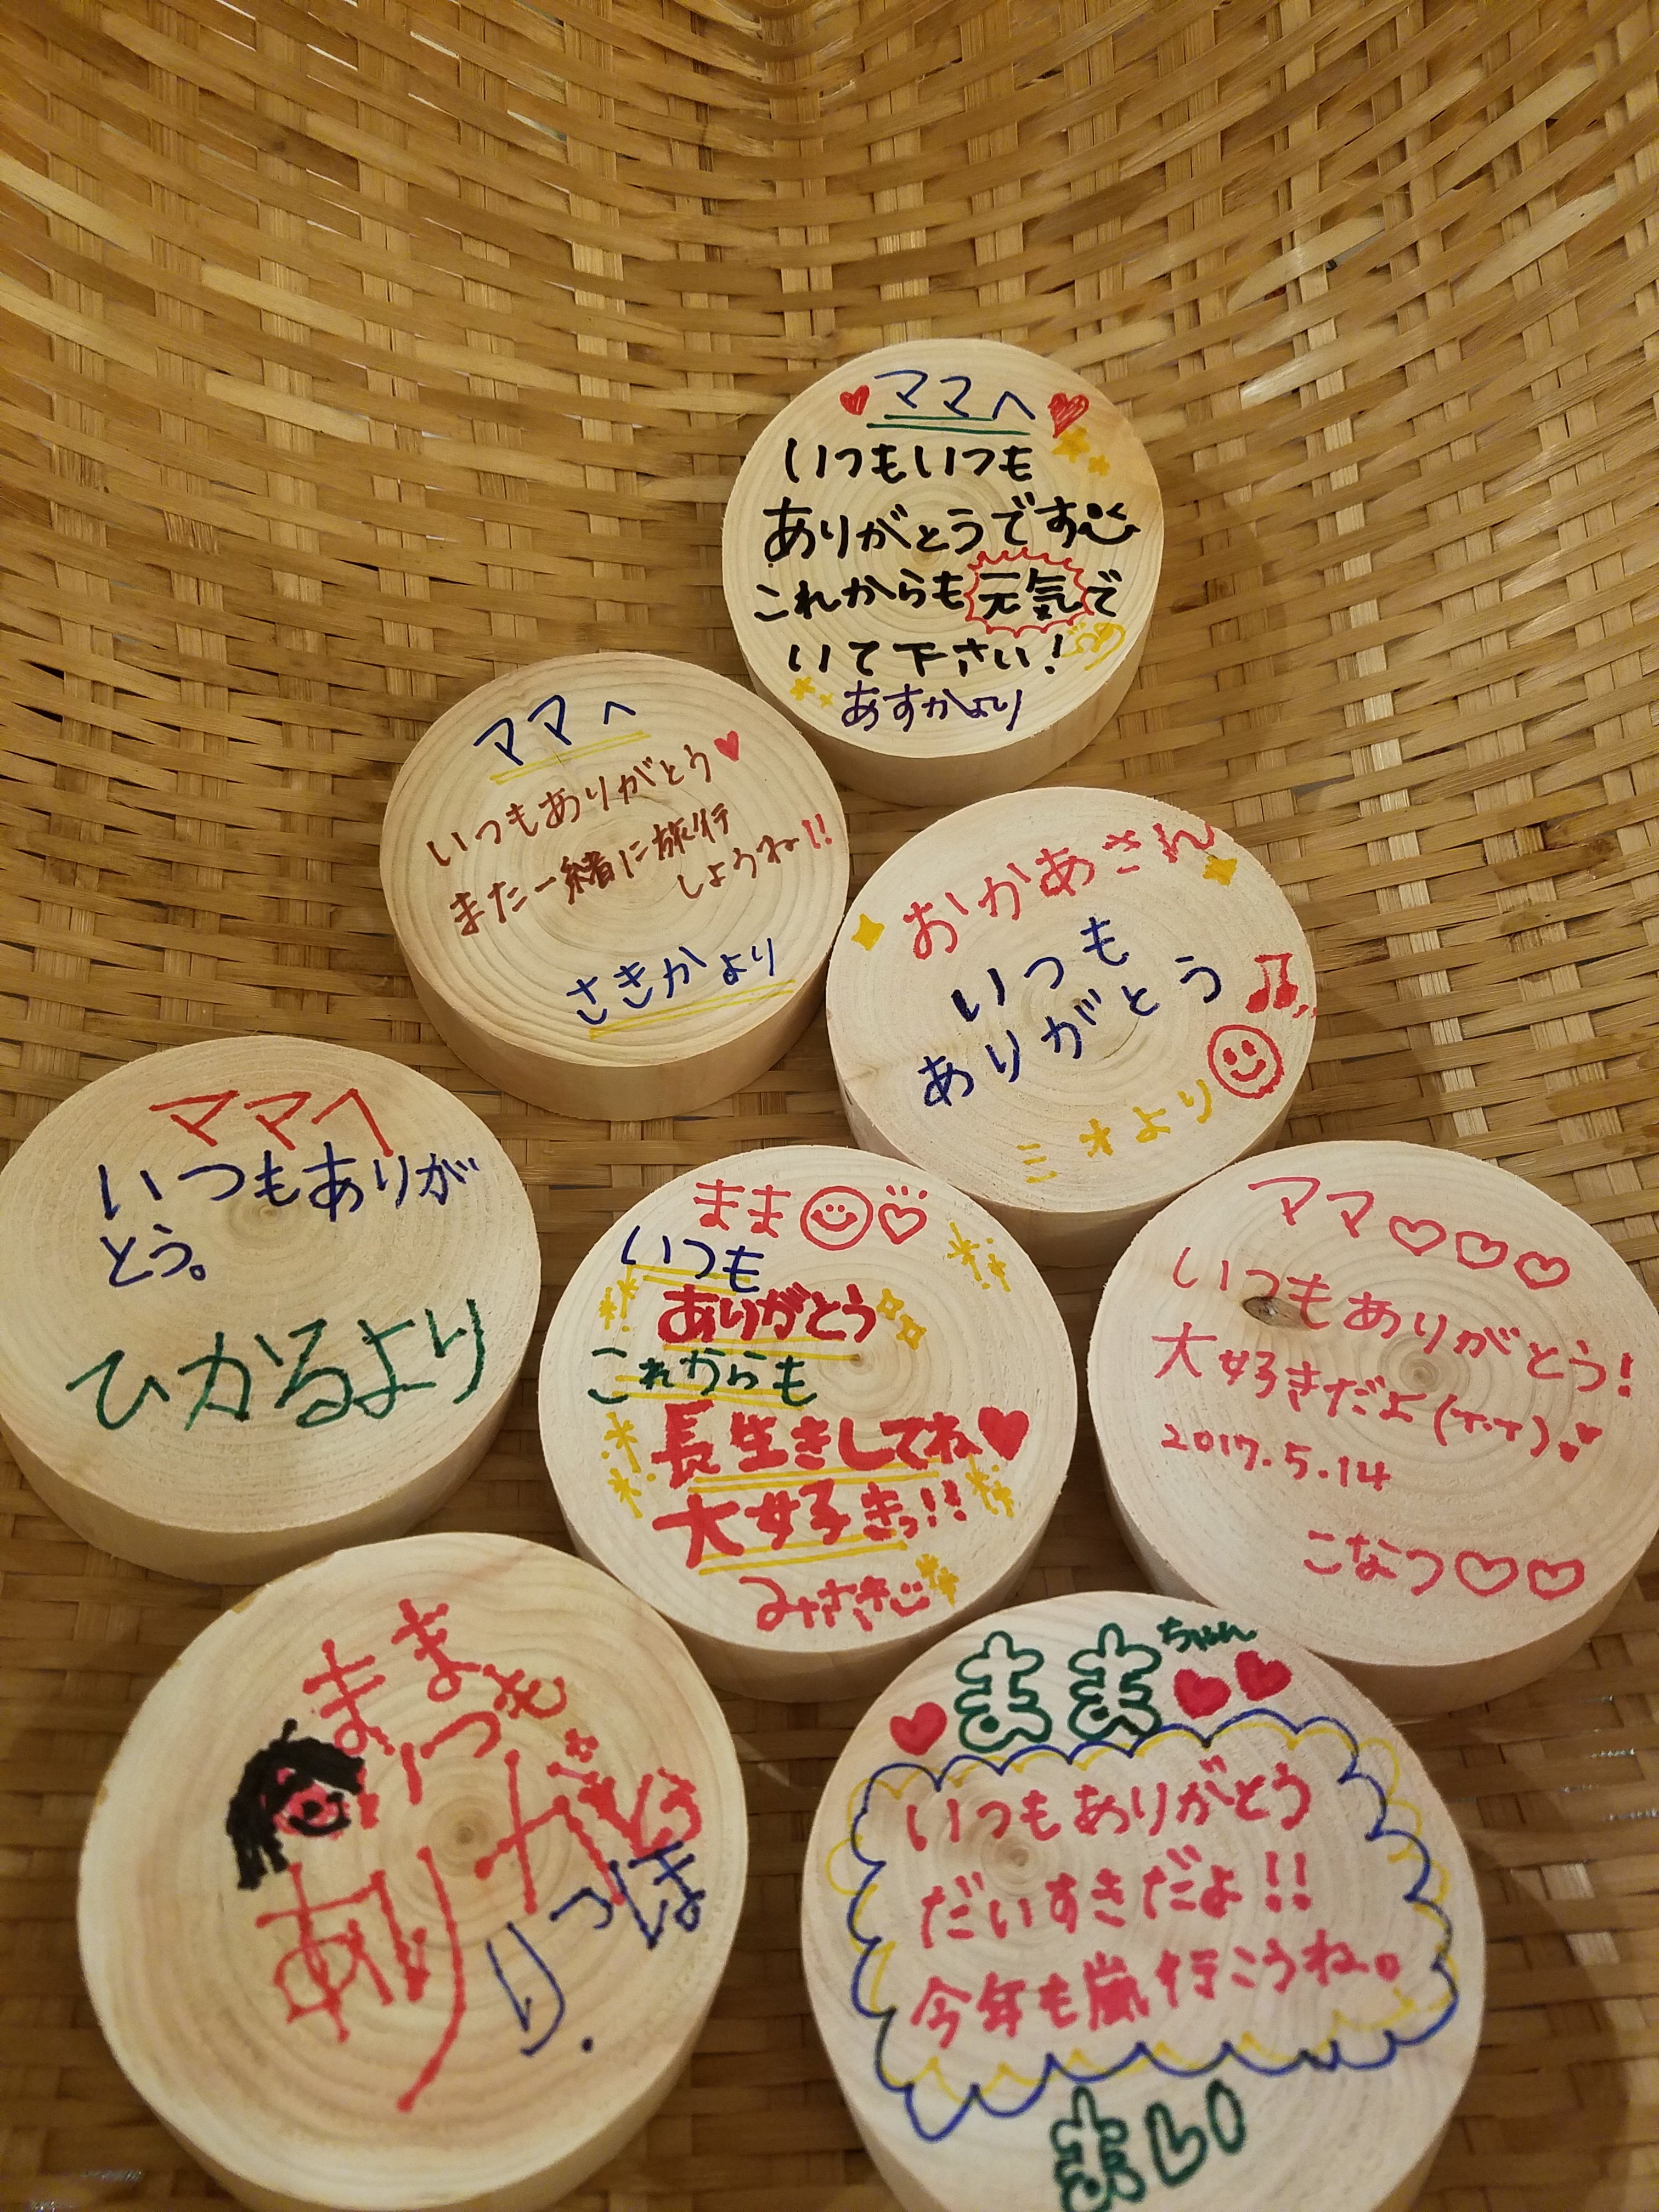 ママへ
いつもいつも
ありがとうです
これからも元気で
いて下さい!
あすかより
ママへ
いつもありがとう
また一緒に旅行
しようね!!
さきかより
おかあさん
いつも
ありがとう
ミオより
ママへ
いつもありが
とう。
ひかるより
まま
いつも
ありがとう
これからも
長生きしてね
大好きっ!!
みさき
ママ
いつもありがとう!
大好きだよ(T.T)
2017.5.14
こなつ
まま
いつも
ありがとう
りつほ
ままちゃん
いつもありがとう
だいすきだよ!!
今年も嵐行こうね。
まい